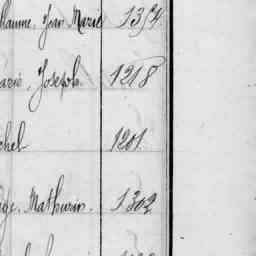 llaume, Jean Marie 1354
arie, Joseph. 1218
chel 1201.
Mathurin. 1302